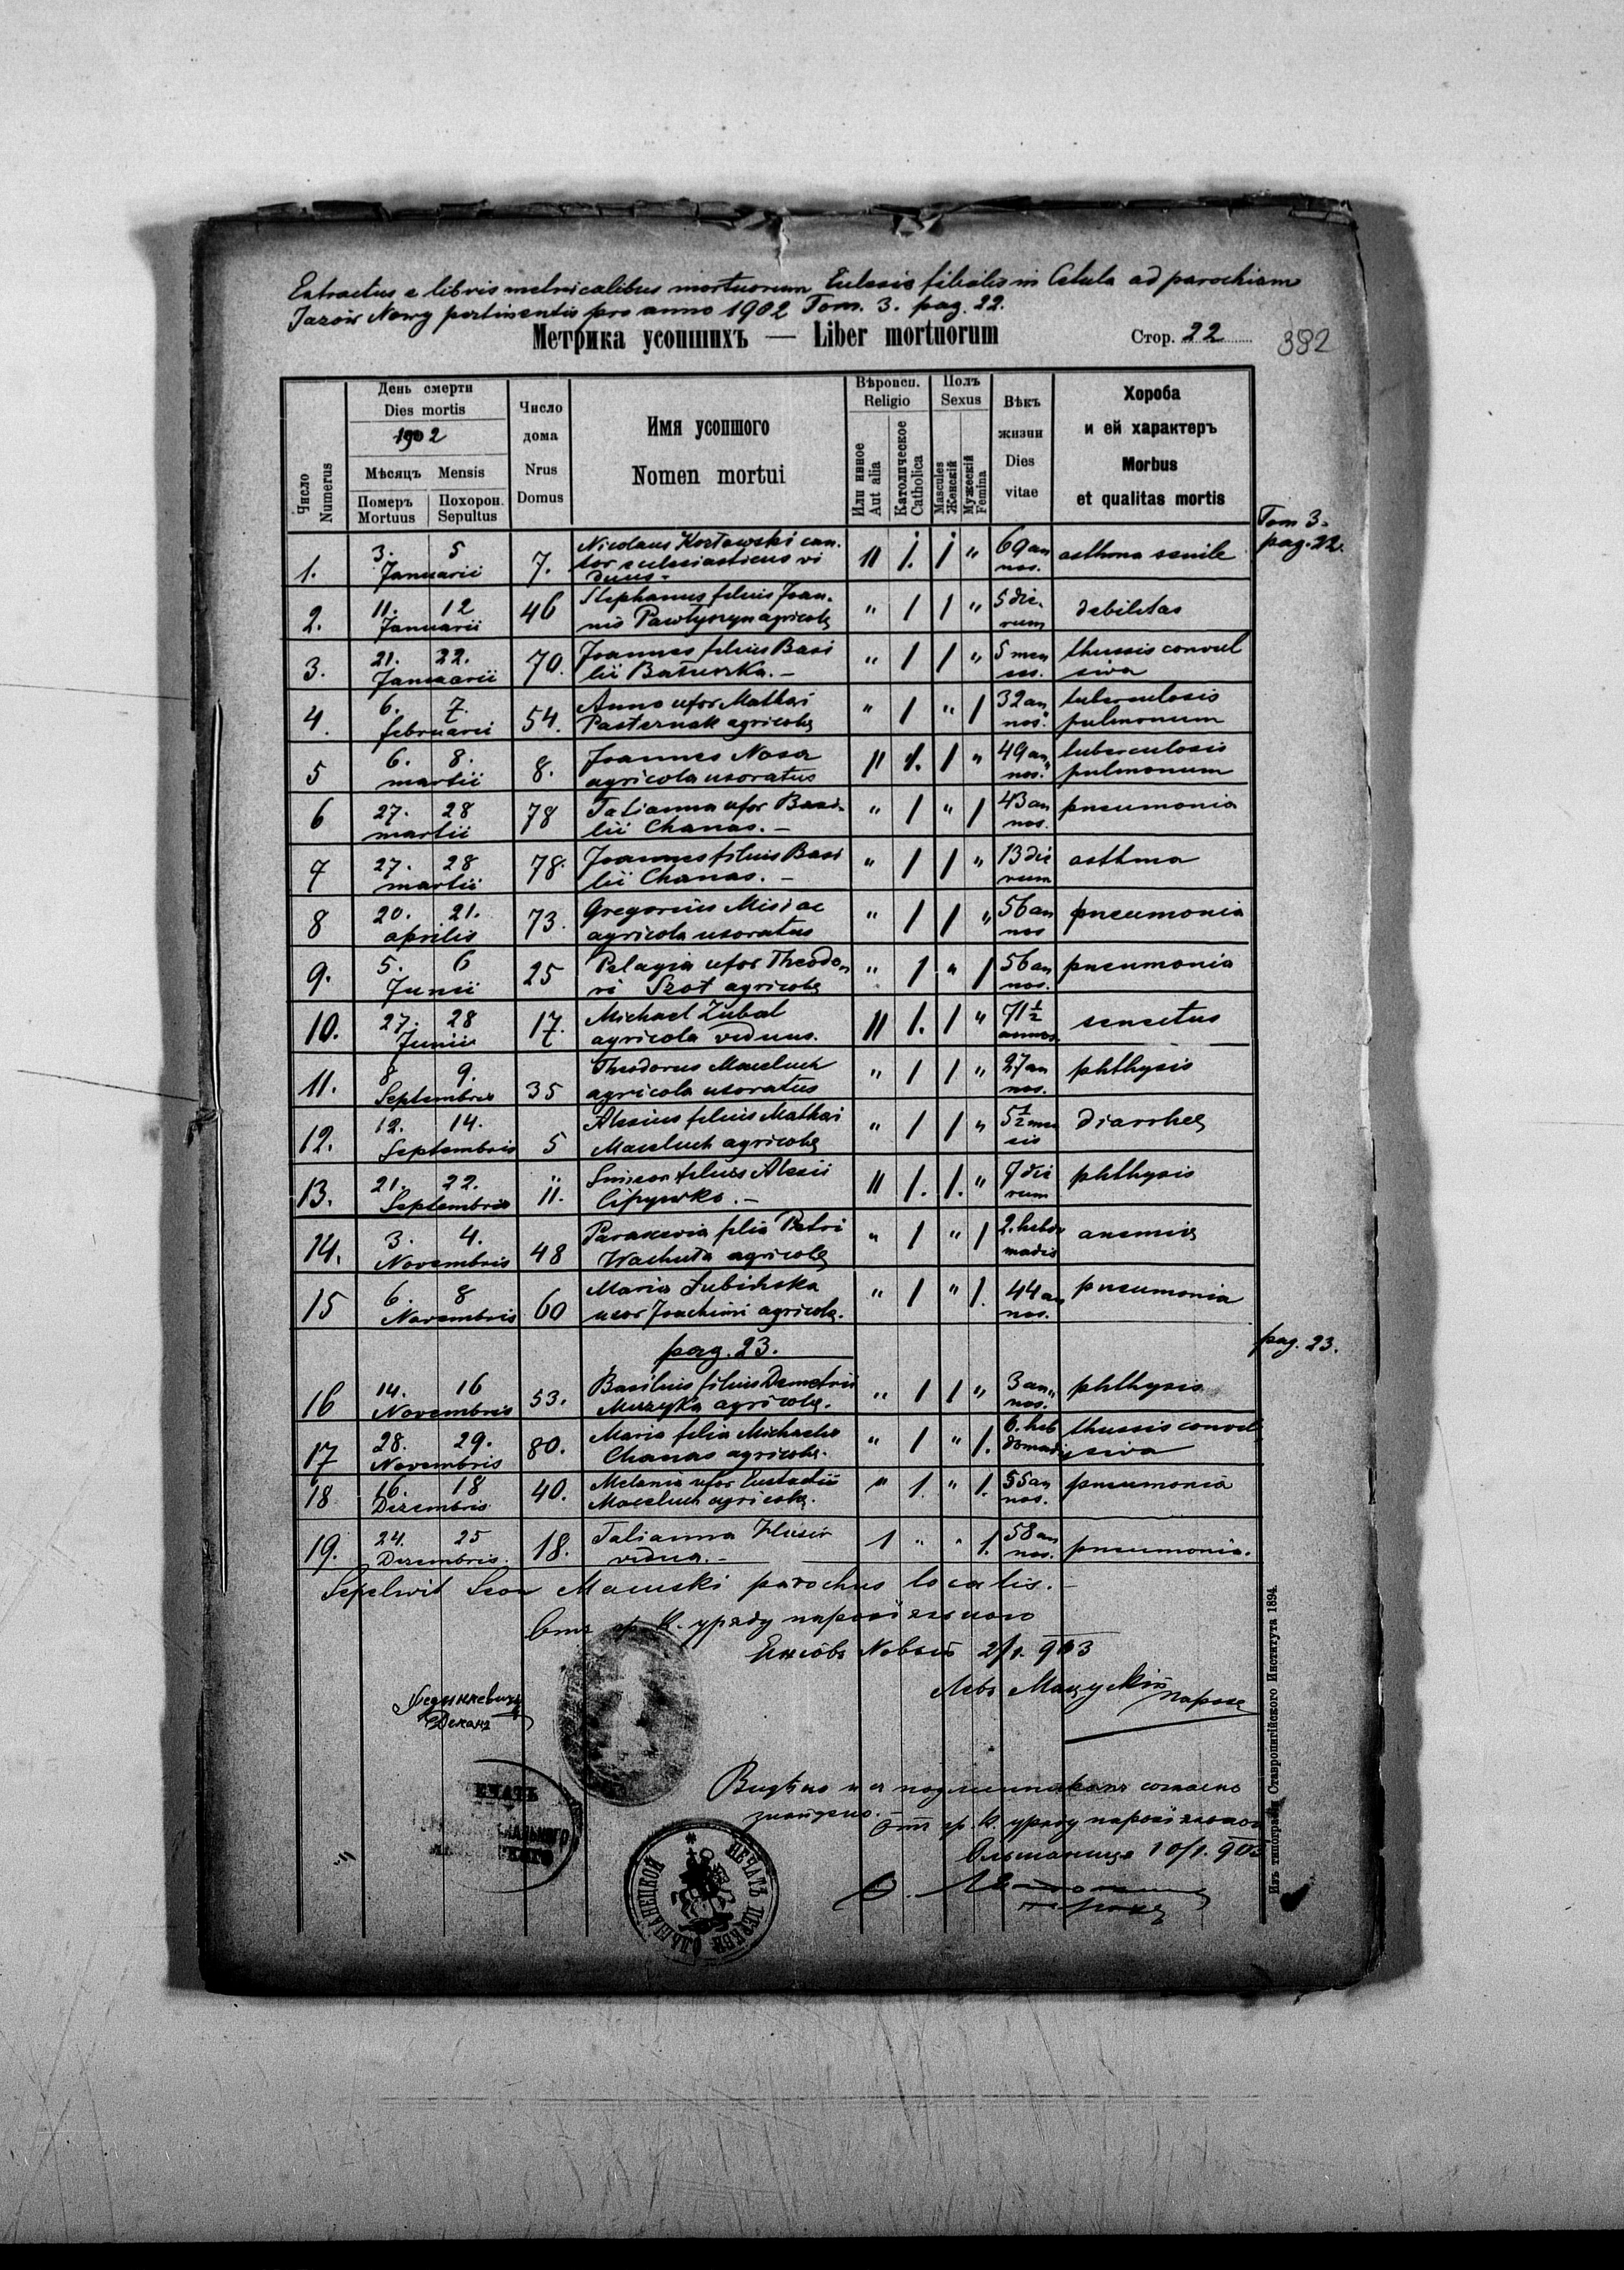 Extractus e libris metricalibus mortuorum Eclesie filialis in Cetula ad parochiam
Jazów Nowy pertinentis pro anno 1902 Tom. 3. pag. 22.
Метрика усопшихъ — Liber mortuorum
Стор. 22
382
Число
Numerus
День смерти
Dies mortis
1902
Мѣсяцъ Mensis
Померъ
Mortuus
Похорон.
Sepultus
Число
дома
Nrus
Domus
Имя усопшого
Nomen mortui
Вѣроисп.
Religio
Или инное
Aut alia
Католическое
Catholica
Полъ
Sexus
Mascules
Женскій
Мужескій
Femina
Вѣкъ
жизни
Dies
vitae
Хороба
и ей характеръ
Morbus
et qualitas mortis
Tom 3.
pag. 22.
1. 3. 5 Januarii 7. Nicolaus Kozłowski can.
tor eclesiasticus vi
duus - " 1. 1 " 69 an
nos. asthma senile
2. 11. 12 Januarii 46 Stephanus filius Joan.
nis Pawłyszyn agricola " 1 1 " 5 die.
rum debilitas
3. 21. 22. Januarii 70. Joannes filius Basi
lii Baturka. - " 1 1 " 5 men
ses. thussis convul
siva
4. 6. 7. februarii 54. Anna uxor Mathei
Pasternak agricola " 1 " 1 32 an
nos. tuberculosis
pulmonum
5 6. 8. martii 8. Joannes Nosa
agricola uxoratus " 1. 1 " 49 an
nos. tuberculosis
pulmonum
6 27. 28 martii 78 Tatianna uxor Basi.
lii Chanas. - " 1 " 1 43 an
nos. pneumonia
7 27. 28 martii 78. Joannes filius Basi
lii Chanas. - " 1 1 " 13 die
rum asthma
8 20. 21. aprilis 73. Gregorius Misiac
agricola uxoratus " 1 1 " 56 an
nos pneumonia
9. 5. 6 Junii 25 Pelagia uxor Theodo
ri Szot agricola " 1 " 1 56 an
nos. pneumonia
10. 27. 28 Junii 17. Michael Zubal
agricola viduus. " 1. 1 " 71 1/2
annos senectus
11. 8 9. Septembris 35 Theodorus Maceluch
agricola uxoratus " 1 1 " 27 an
nos. phthysis
12. 12. 14. Septembris 5 Alexius filius Mathei
Maceluch agricola " 1 1 " 5 1/2 men
sis diarrhea
13. 21. 22. Septembris 11. Simeon filius Alexii
Cipywko. - " 1. 1. " 7 die
rum phthysis
14. 3. 4. Novembris 48 Parascevia filia Petri
Wachuta agricola " 1 " 1 2. hebdo
madis anemia
15 6. 8 Novembris 60 Maria Łubińska
uxor Joachimi agricola. " 1 " 1. 44 an
nos. pneumonia
pag. 23.
pag. 23.
16 14. 16 Novembris 53. Basilius filius Demetrii
Muzyka agricola. " 1 1 " 3 an
nos. phthysis
17 28. 29. Novembris 80. Maria filia Michaelis
Chanas agricola. " 1 " 1. 6. heb
domadis thussis convul
siva
18 16. 18 Dezembris 40. Melania uxor Eustachii
Maceluch agricola. " 1. " 1. 55 an
nos. pneumonia
19. 24. 25 Dezembris. 18. Tatianna
vidua. - 1 " " 1. 58 an
nos. pneumonia.
Sepelivit Leon Macuski parochus localis.
Отъ гр. К. уряду парохіяльного
Язовъ Новый 2/1. 903
Левъ Мацускій
парохъ
Деканъ
Видѣно и съ подлинникомъ согласно
знайдено. -
Отъ гр. К. уряду парохіяльного
Ольшаница 10/1. 903
парохъ
ПЕЧАТЬ ЦЕРКВИ ОЛЬШАНЕЦКОЙ
Изъ типографіи Ставропигійского Института 1894